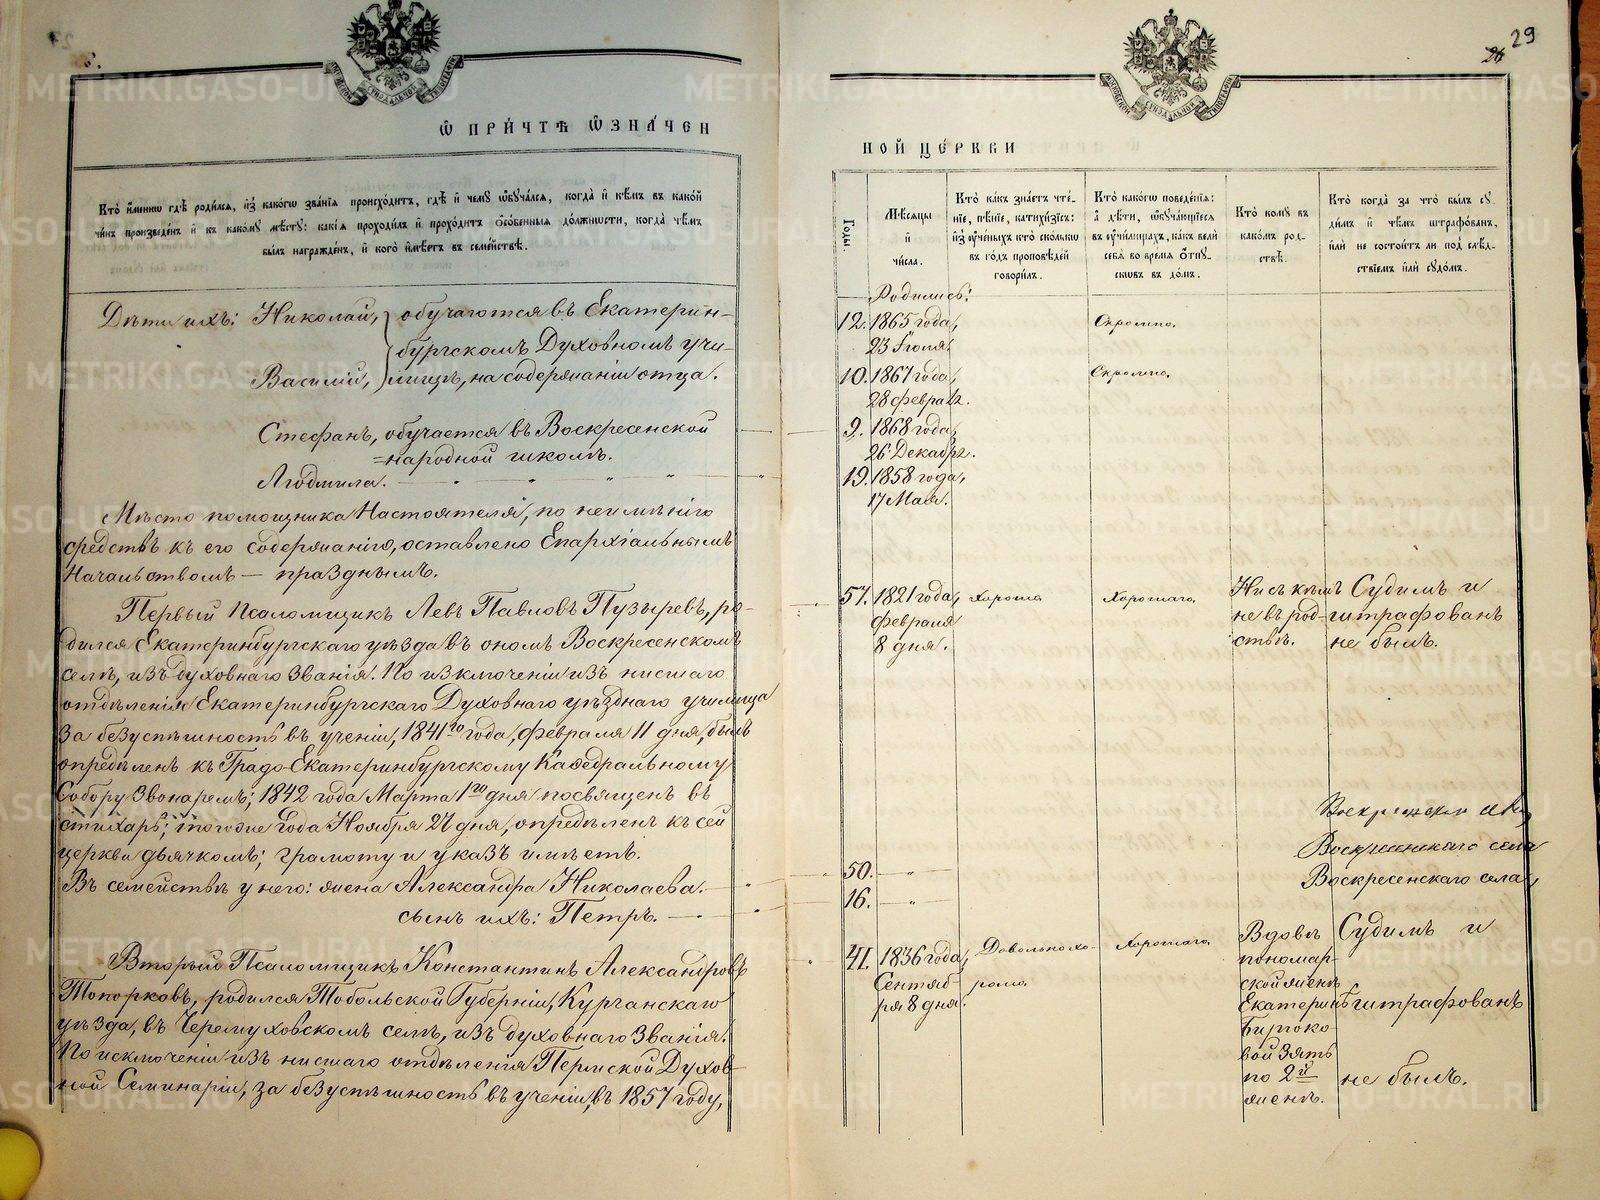 Ѿ ПРИ́ЧТѢ ѾЗНА́ЧЕН
Кто̀ и҆́меннѡ гдѣ̀ роди́лсѧ, и҆з̾ како́гѡ зва́нїѧ происхо́дитъ, гдѣ̀ и҆ чемꙋ̀ ѡ҆бꙋча́лсѧ, когда̀ и҆ кѣ́мъ въ како́й
чи́нъ произведе́нъ и҆ къ како́мꙋ мѣ́стꙋ: какі̑ѧ проходи́лъ и҆ прохо́дитъ ѻ҆со́бенныѧ до́лжности, когда̀ чѣ́мъ
бы́лъ награжде́нъ, и҆ кого̀ и҆мѣ́етъ въ семе́йствѣ.
Дѣти ихъ: Николай, обучаются въ Екатерин-
бургскомъ Духовномъ учи-
Василій, лищѣ, на содержаніи отца.
Стефанъ, обучается въ Воскресенской
=народной школѣ.
Людмила. — „ — „ — „
Мѣсто помощника Настоятеля, по неимѣнію
средствъ къ его содержанію, оставлено Епархіальнымъ
Начальствомъ — празднымъ.
Первый Псаломщикъ Левъ Павловъ Пузыревъ, ро-
дился Екатеринбургскаго уѣзда въ ономъ Воскресенскомъ
селѣ, изъ духовнаго званія. По изключеніи изъ низшаго
отдѣленія Екатеринбургскаго Духовнаго уѣзднаго училища
за безуспѣшность въ ученіи, 1841го года, февраля 11 дня, былъ
опредѣленъ къ Градо-Екатеринбургскому Каѳедральному
Собору звонаремъ; 1842 года Марта 1го дня посвященъ въ
стихарь; тогоже года Ноября 27 дня, опредѣленъ къ сей
церкви дьячкомъ; грамоту и указъ имѣетъ.
Въ семействѣ у него: жена Александра Николаева. — „
сынъ ихъ: Петръ. — „
Вторый Псаломщикъ Константинъ Александровъ
Топорковъ, родился Тобольской Губерніи, Курганскаго
уѣзда, въ Черемуховскомъ селѣ, изъ духовнаго званія.
По исключеніи изъ низшаго отдѣленія Пермской Духов-
ной Семинаріи, за безуспѣшность въ ученіи, въ 1857 году,
29
НОЙ ЦЕ́РКВИ
Годы.
Мѣ́сѧцы
и҆
чи́сла.
Кто̀ ка́къ зна́етъ чте́-
нїе, пѣ́нїе, катихи́зїсъ:
и҆з̾ ᲂу҆че́ныхъ кто̀ ско́лькѡ
въ го́дъ проповѣ́дей
говори́лъ.
Кто̀ како́гѡ поведе́нїѧ:
а҆ дѣ́ти, ѡ҆бꙋча́ющїесѧ
въ ᲂу҆чи́лищахъ, ка́къ велѝ
себѧ̀ во вре́мѧ ѿпꙋ-
ско́въ въ до́мъ.
Кто̀ комꙋ̀ въ
како́мъ род-
ствѣ̀.
Кто̀ когда̀ за что̀ бы́лъ сꙋ-
ди́мъ и҆ чѣ́мъ штрафо́ванъ,
и҆лѝ не состои́тъ ли под̾ слѣ́д-
ствїемъ и҆лѝ сꙋдо́мъ.
Родились:
12. 1865 года, Скромно.
23 Іюля.
10. 1867 года, Скромно.
28 февраля.
9. 1868 года,
26 Декабря.
19. 1858 года,
17 Мая.
57. 1821 года, хорошо. Хорошаго. Ни съ кѣмъ Судимъ и
февраля не въ род- штрафованъ
8 дня. ствѣ. не былъ.
Воскресенскаго села
50. — „ — Воскресенскаго села,
16. — „ —
41. 1836 года, Довольно хо- Хорошаго. Вдовѣ Судимъ и
пономар-
Сентяб- рошо. ской женѣ
ря 8 дня. Екатеринѣ штрафованъ
Бирюко-
вой зять
по 2й не былъ.
женѣ.
METRIKI.GASO-URAL.RU